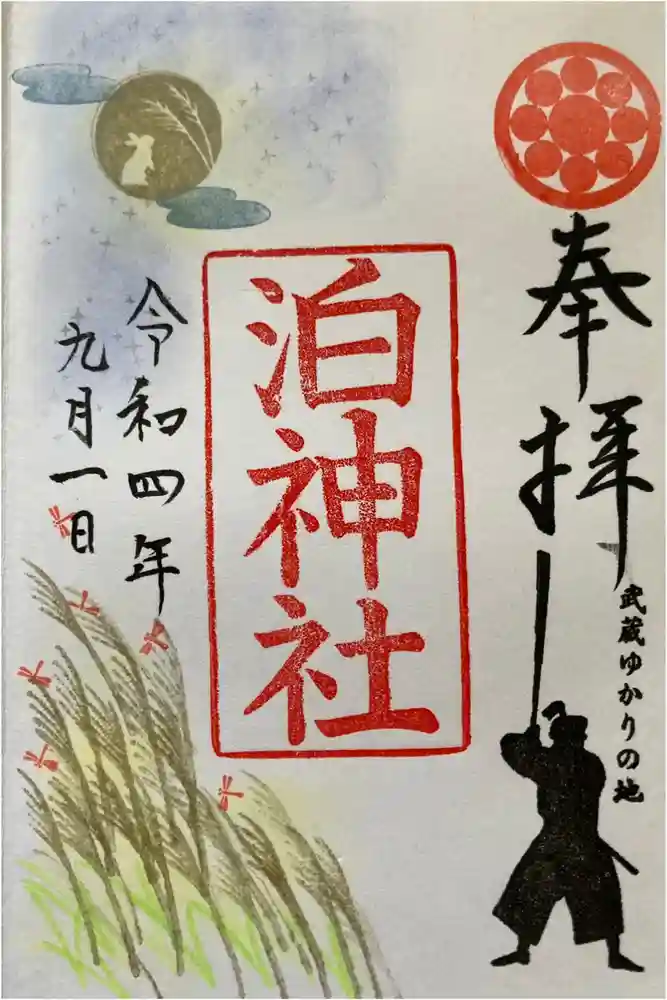 奉拝
武蔵ゆかりの地
泊神社
令和四年
九月一日